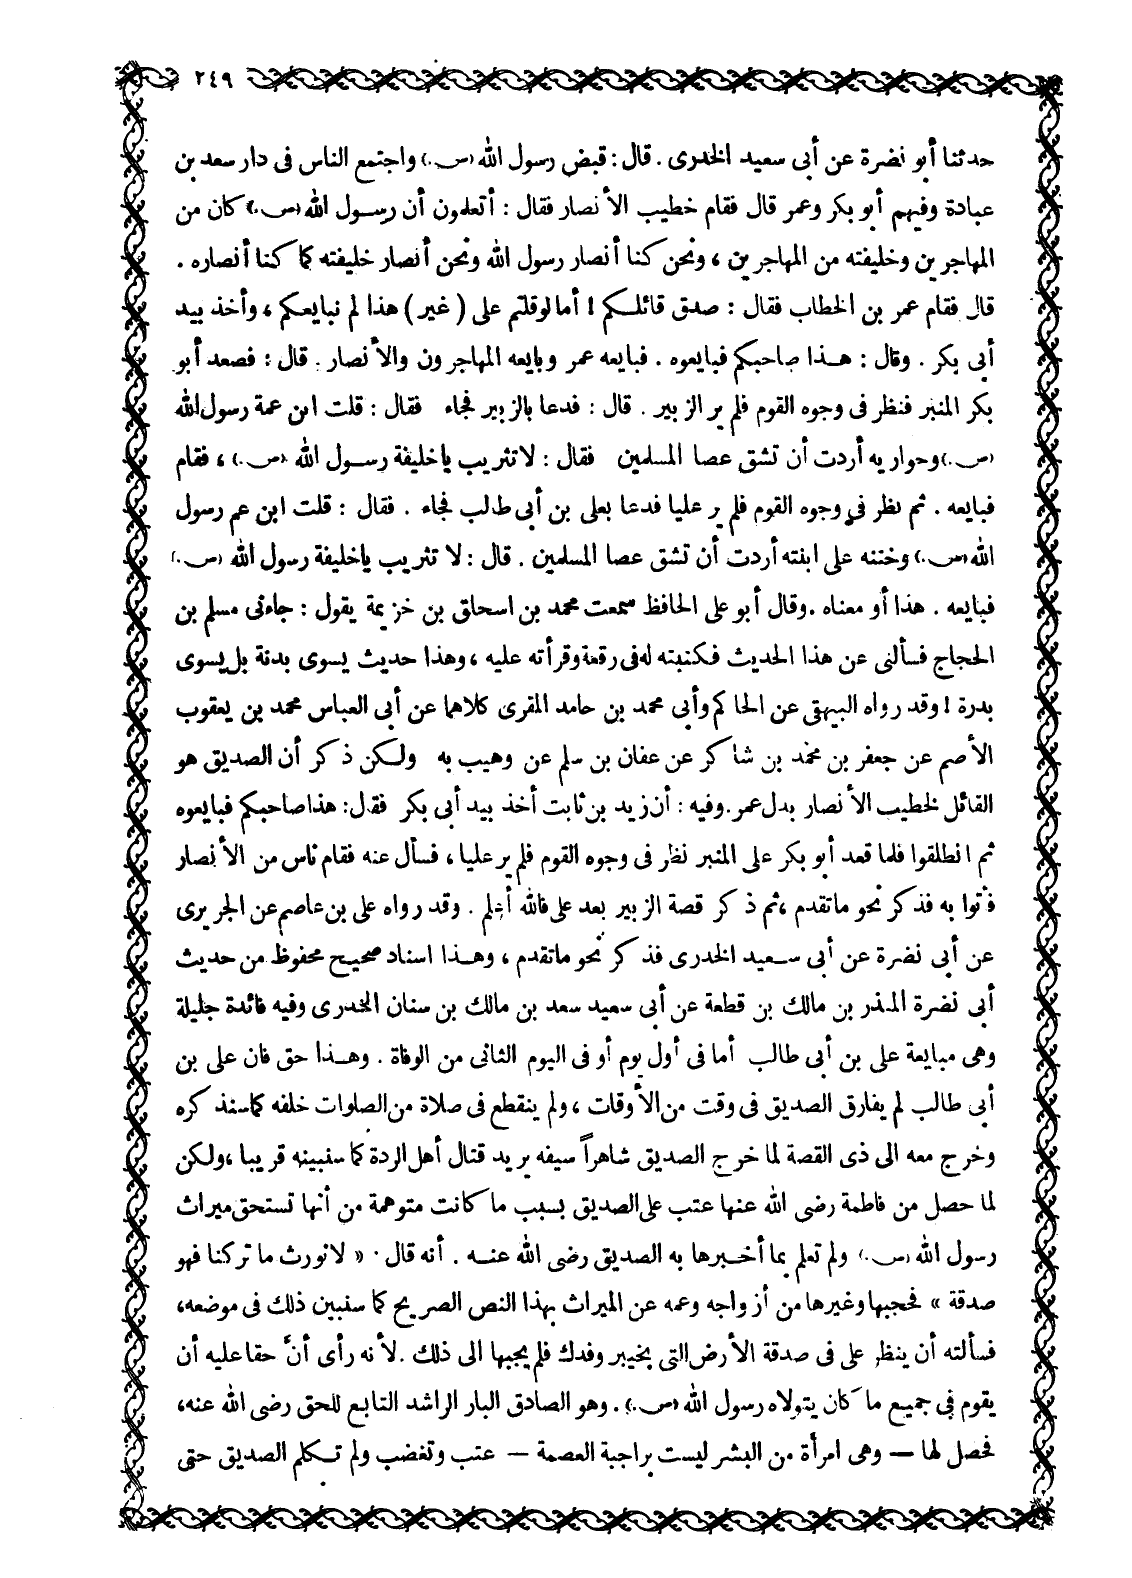 ٢٤٩
حدثنا أبو نضرة عن أبى سعيد الخدرى . قال : قبض رسول الله (ص.) واجتمع الناس فى دار سعد بن
عبادة وفيهم أبو بكر وعمر قال فقام خطيب الأنصار فقال : أتعلمون أن رسول الله (ص.) كان من
المهاجرين وخليفته من المهاجرين ، ونحن كنا أنصار رسول الله ونحن أنصار خليفته كما كنا أنصاره .
قال فقام عمر بن الخطاب فقال : صدق قائلكم ! أما لو قلتم على ( غير ) هذا لم نبايعكم ، وأخذ بيد
أبى بكر . وقال : هذا صاحبكم فبايعوه . فبايعه عمر وبايعه المهاجرون والأنصار . قال : فصعد أبو
بكر المنبر فنظر فى وجوه القوم فلم ير الزبير . قال : فدعا بالزبير فجاء فقال : قلت ابن عمة رسول الله
(ص.) وحواريه أردت أن تشق عصا المسلمين فقال : لا تثريب يا خليفة رسول الله (ص.) ، فقام
فبايعه . ثم نظر فى وجوه القوم فلم ير عليا فدعا بعلى بن أبى طالب فجاء . فقال : قلت ابن عم رسول
الله (ص.) وختنه على ابنته أردت أن تشق عصا المسلمين . قال : لا تثريب يا خليفة رسول الله (ص.)
فبايعه . هذا أو معناه . وقال أبو على الحافظ سمعت محمد بن اسحاق بن خزيمة يقول : جاءنى مسلم بن
الحجاج فسألنى عن هذا الحديث فكتبته له فى رقعة وقرأته عليه ، وهذا حديث يسوى بدنة بل يسوى
بدرة ! وقد رواه البيهقى عن الحاكم وأبى محمد بن حامد المقرى كلاهما عن أبى العباس محمد بن يعقوب
الأصم عن جعفر بن محمد بن شاكر عن عفان بن سلم عن وهيب به ولكن ذكر أن الصديق هو
القائل لخطيب الأنصار بدل عمر . وفيه : أن زيد بن ثابت أخذ بيد أبى بكر فقال : هذا صاحبكم فبايعوه
ثم انطلقوا فلما قعد أبو بكر على المنبر نظر فى وجوه القوم فلم ير عليا ، فسأل عنه فقام ناس من الأنصار
فأتوا به فذكر نحو ما تقدم ، ثم ذكر قصة الزبير بعد على فالله أعلم . وقد رواه على بن عاصم عن الجريرى
عن أبى نضرة عن أبى سعيد الخدرى فذكر نحو ما تقدم ، وهذا اسناد صحيح محفوظ من حديث
أبى نضرة المنذر بن مالك بن قطعة عن أبى سعيد سعد بن مالك بن سنان الخدرى وفيه فائدة جليلة
وهى مبايعة على بن أبى طالب أما فى أول يوم أو فى اليوم الثانى من الوفاة . وهذا حق فان على بن
أبى طالب لم يفارق الصديق فى وقت من الأوقات ، ولم ينقطع فى صلاة من الصلوات خلفه كما سنذكره
وخرج معه الى ذى القصة لما خرج الصديق شاهراً سيفه يريد قتال أهل الردة كما سنبينه قريبا ، ولكن
لما حصل من فاطمة رضى الله عنها عتب على الصديق بسبب ما كانت متوهمة من أنها تستحق ميراث
رسول الله (ص.) ولم تعلم بما أخبرها به الصديق رضى الله عنه . أنه قال . « لا نورث ما تركنا فهو
صدقة » فحجبها وغيرها من أزواجه وعمه عن الميراث بهذا النص الصريح كما سنبين ذلك فى موضعه ،
فسألته أن ينظر على فى صدقة الأرض التى بخيبر وفدك فلم يجبها الى ذلك . لأنه رأى أنَّ حقا عليه أن
يقوم فى جميع ما كان يتولاه رسول الله (ص.) . وهو الصادق البار الراشد التابع للحق رضى الله عنه ،
فحصل لها — وهى امرأة من البشر ليست براجبة العصمة — عتب وتغضب ولم تكلم الصديق حتى